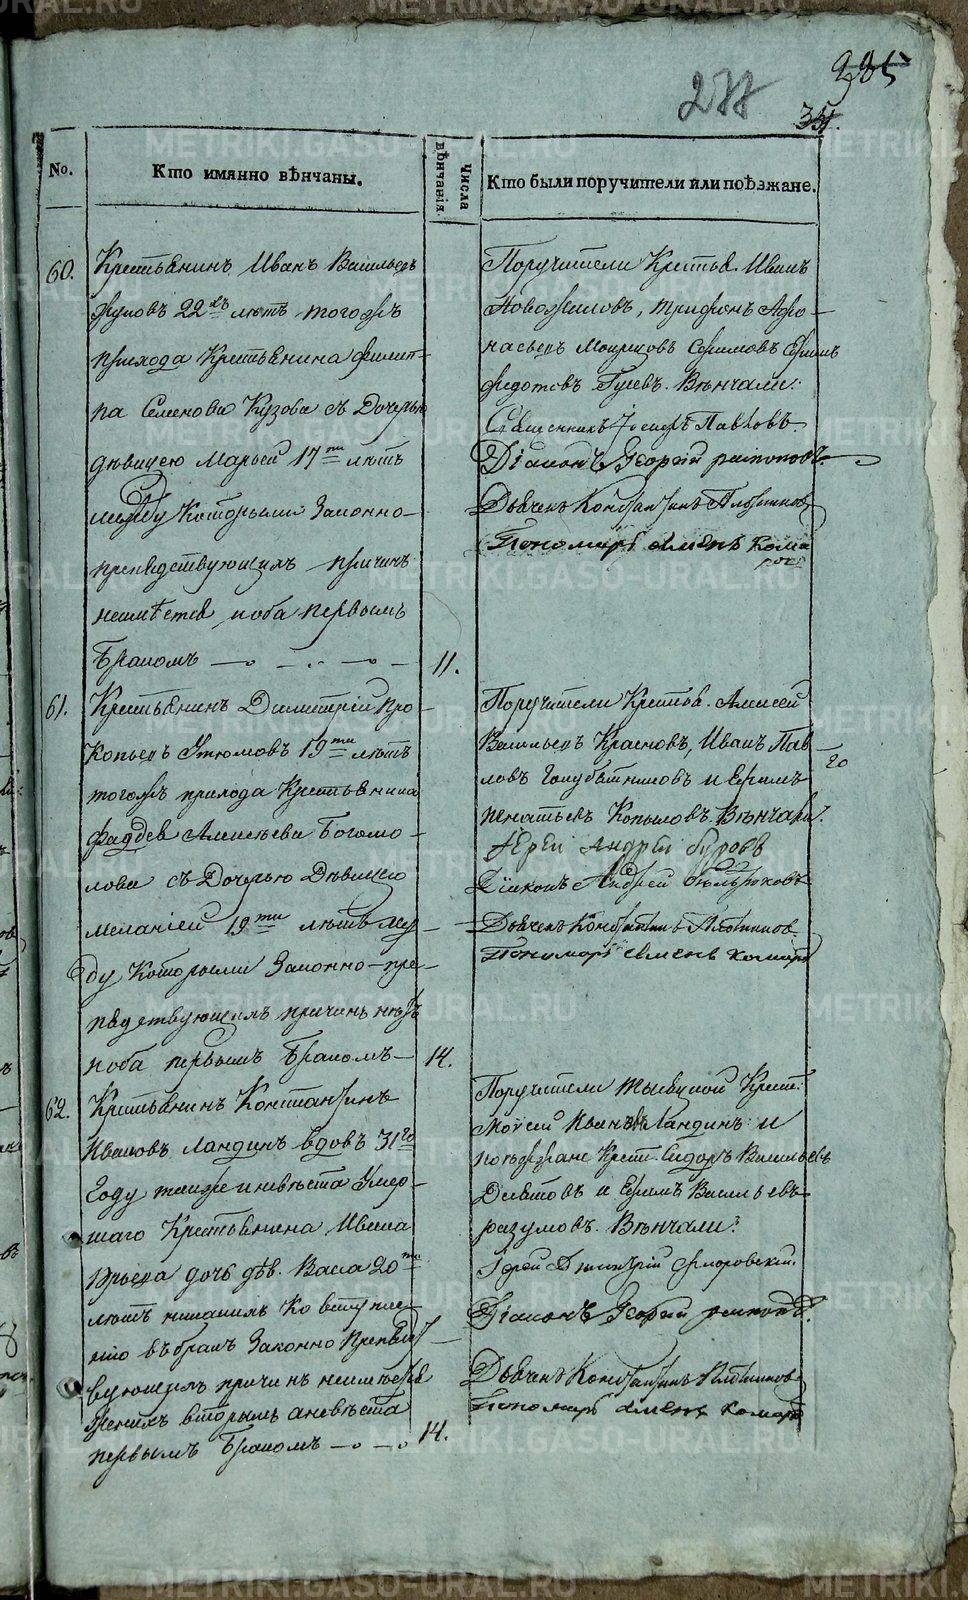 285
277
351.
No.
Кто имянно вѣнчаны.
Числа вѣнчанія.
Кто были поручители или поѣзжане.
60.
Крестьянинъ Иванъ Васильевъ
22хъ лѣтъ тогожъ
прихода Крестьянина Филип-
па Семенова Кузова съ Дочерью
дѣвицею Марьей 17ти лѣтъ
между Которыми Законно-
препядствующихъ причинъ
неимѣется, иоба первымъ
бракомъ
11.
Поручители Крестья. Иванъ
Новожиловъ, Трифонъ Афо-
насьевъ Ефимъ
Федотовъ Гусевъ. Вѣнчали:
Священникъ Іосифъ Павловъ
Діаконъ Георгій
Дьячекъ Константинъ Плотниковъ
Пономарь Семенъ Кома
ровъ
61.
Крестьянинъ Димитрій Про-
Копьевъ Утюмовъ 19ти лѣтъ
тогожъ прихода Крестьянина
Фадѣя Алексѣева Богомо-
лова съ Дочерью Дѣвицей
Меланіей 19ти лѣтъ ме-
жду Которыми Законно-пре-
пядствующихъ причинъ нѣтъ
иоба первымъ бракомъ
14.
Поручители Крестья. Алексей
Васильевъ Красновъ, Иванъ Пав-
ловъ Голубятниковъ и Ефимъ
Игнатьевъ Копыловъ. Вѣнчали:
20
Іерей Андрей Суровъ
Діаконъ Андрей
Дьячекъ Константинъ Плотниковъ
Пономарь Семенъ Комаровъ
62.
Крестьянинъ Константинъ
Ивановъ Ландинъ вдовъ 31го
Году такожъ и невѣста Умер-
шаго Крестьянина Ивана
Юрьева дочь дѣв. Васа 20ти
лѣтъ никакихъ Ко вступле-
нію въ бракъ Законно Препядст-
вующихъ причинъ неимѣется
женихъ вторымъ а невѣста
первымъ бракомъ
14.
Поручители Тысяцкой Крест.
Мосей Ивановъ Ландинъ и
поѣзжане Крест. Сидоръ Васильевъ
Девятовъ и Ефимъ Васильевъ
разумовъ. Вѣнчали:
Іерей Димитрій Флоровскій
Діаконъ Георгій
Дьячекъ Константинъ Плотниковъ
Пономарь Семенъ Комаровъ
METRIKI.GASO-URAL.RU